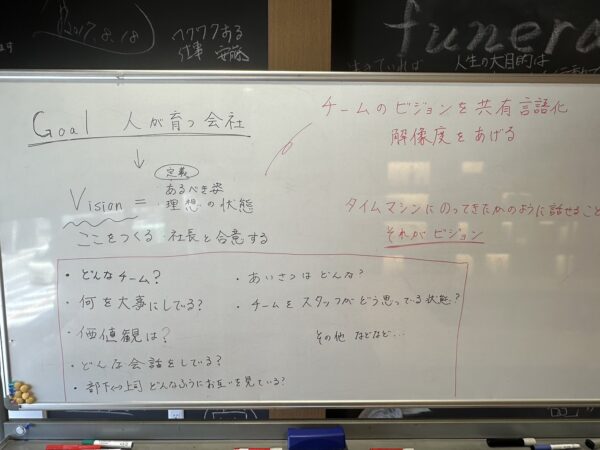 2017.8.18
ワクワクある
仕事 安藤
funera
生きていれば
人生の大目的は
Goal 人が育つ会社
↓
定義
Vision = あるべき姿
理想の状態
ここをつくる 社長と合意する
チームのビジョンを共有言語化
解像度をあげる
タイムマシンにのってきたかのように話せること
それがビジョン
・どんなチーム?
・何を大事にしている?
・価値観は?
・どんな会話をしている?
・部下↔上司 どんなふうにお互いを見ている?
・あいさつはどんな?
・チームをスタッフがどう思っている状態?
その他 などなど…